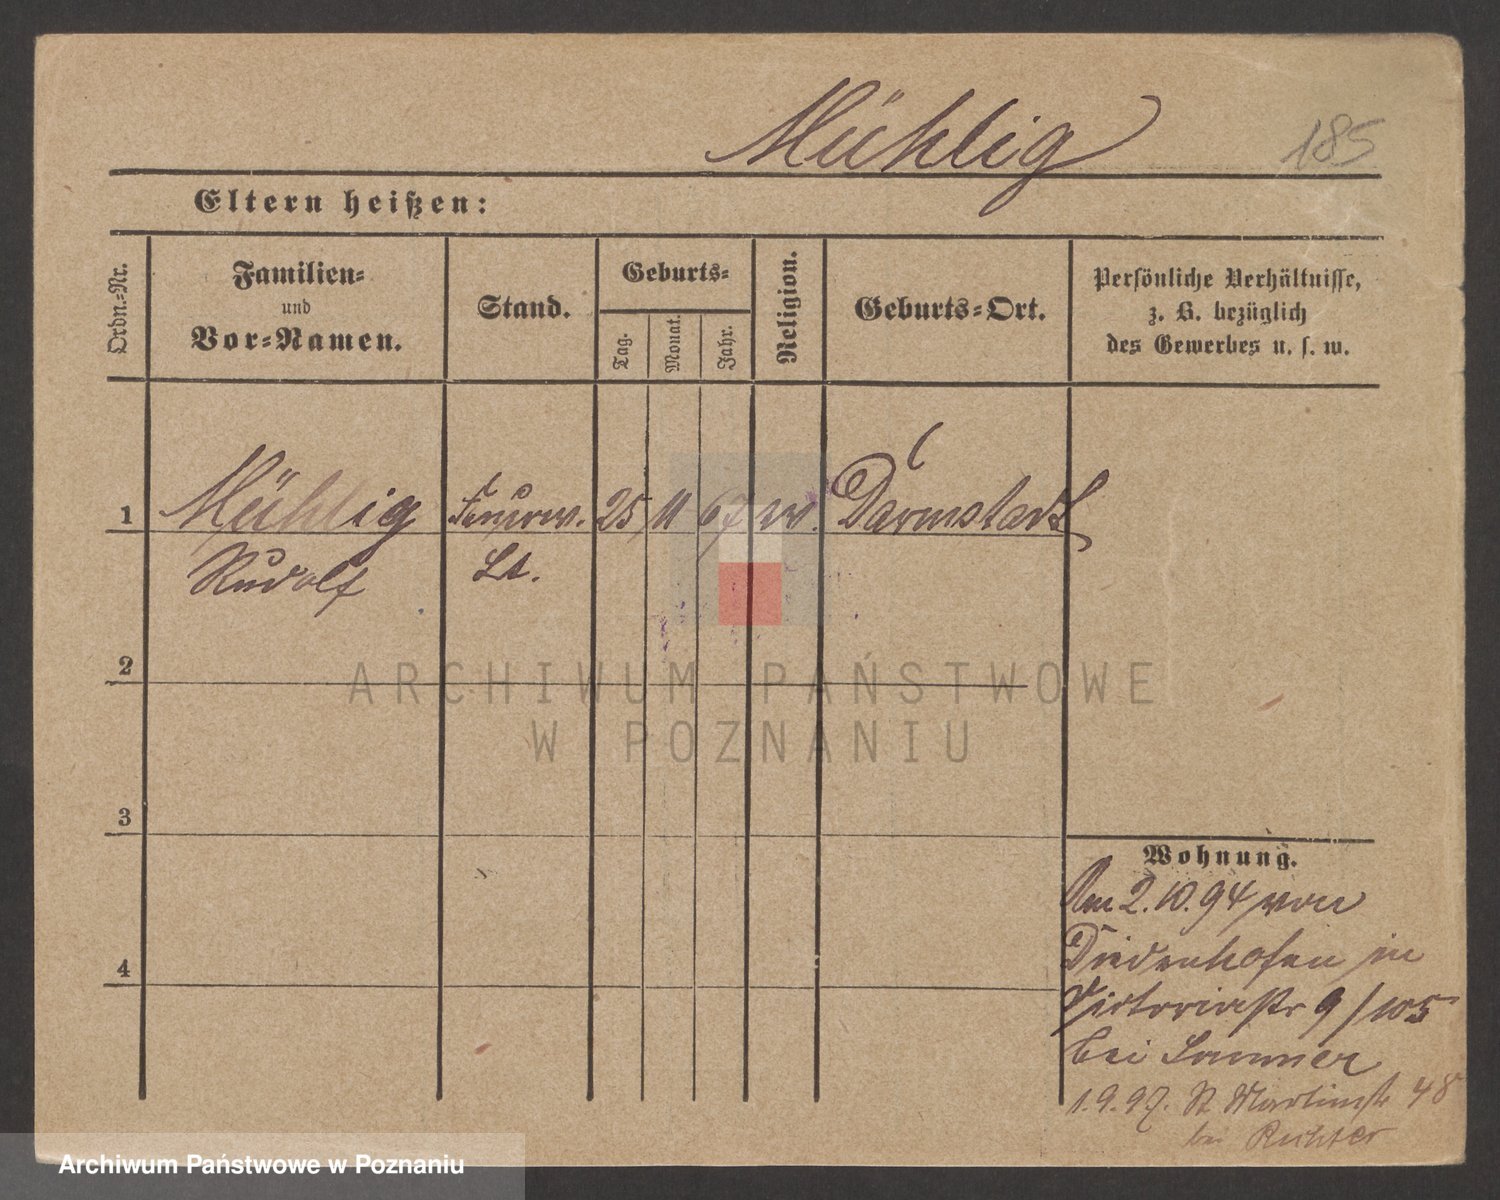 Mühlig
185
Eltern heißen:
Ordn.-Nr.
Familien-
und
Vor-Namen.
Stand.
Geburts-
Tag.
Monat.
Jahr.
Religion.
Geburts-Ort.
Persönliche Verhältnisse,
z. B. bezüglich
des Gewerbes u. s. w.
1
Mühlig Feuerw. 25 11 67 ev. Darmstadt
Rudolf Lt.
2
ARCHIWUM PAŃSTWOWE
W POZNANIU
3
Wohnung.
Am 2.10.94 von
4
Diedenhofen in
Victoriastr 9/105
bei
1.9.97. St Martinstr 48
bei Richter
Archiwum Państwowe w Poznaniu